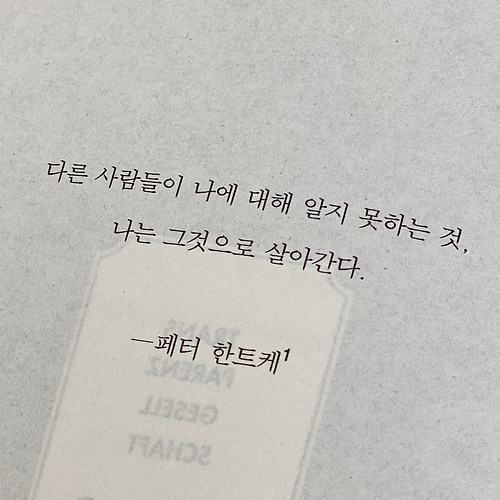 다른 사람들이 나에 대해 알지 못하는 것,
나는 그것으로 살아간다.
—페터 한트케¹
TRANS
PARENZ
GESELL
SCHAFT